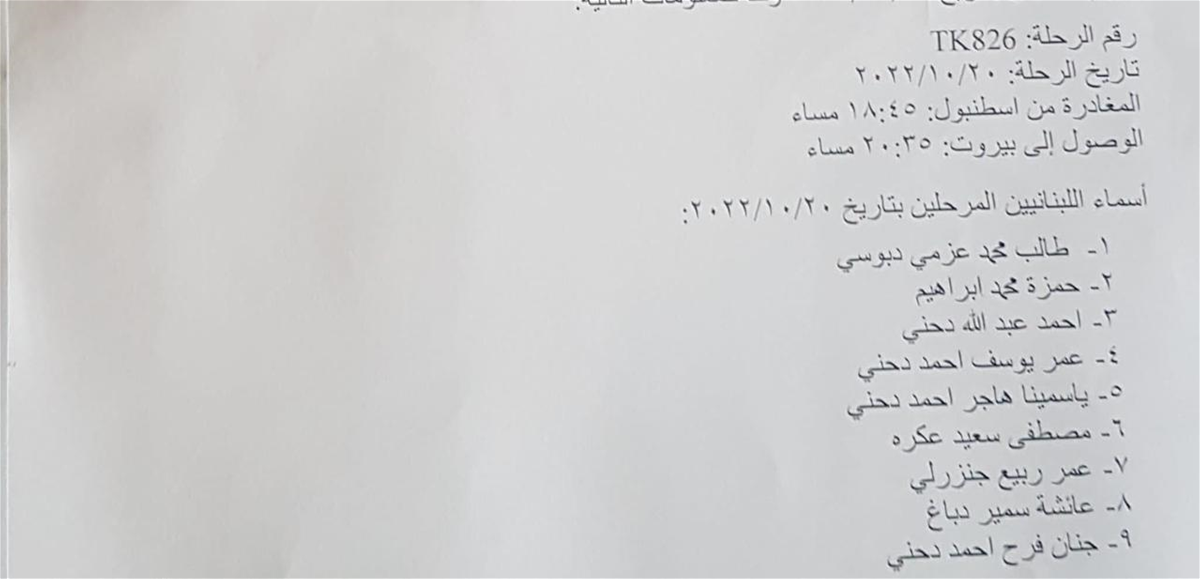 المعلومات التالية:
رقم الرحلة: TK826
تاريخ الرحلة: ٢٠٢٢/١٠/٢٠
المغادرة من اسطنبول: ١٨:٤٥ مساء
الوصول إلى بيروت: ٢٠:٣٥ مساء
أسماء اللبنانيين المرحلين بتاريخ ٢٠٢٢/١٠/٢٠:
١- طالب محمد عزمي دبوسي
٢- حمزة محمد ابراهيم
٣- احمد عبد الله دحني
٤- عمر يوسف احمد دحني
٥- ياسمينا هاجر احمد دحني
٦- مصطفى سعيد عكره
٧- عمر ربيع جنزرلي
٨- عائشة سمير دباغ
٩- جنان فرح احمد دحني